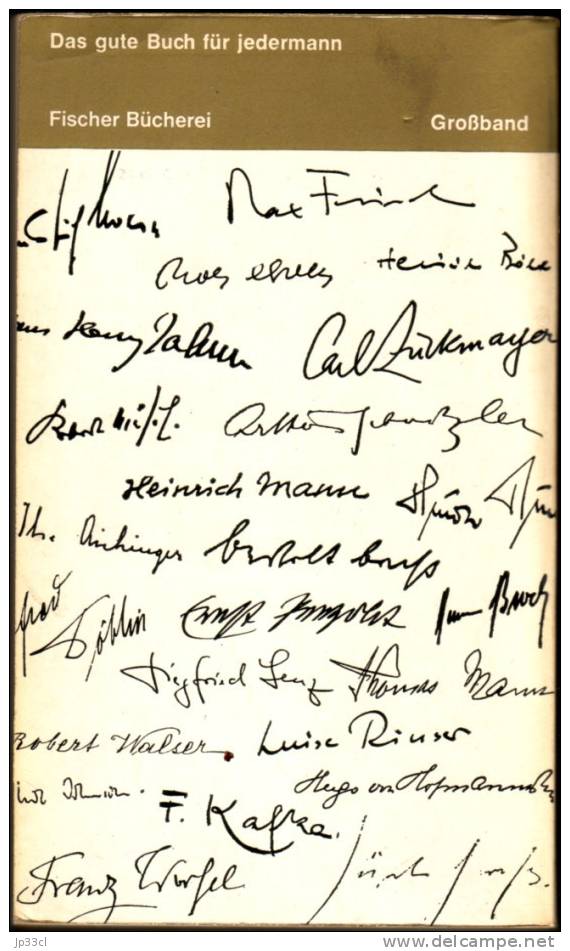 Das gute Buch für jedermann
Fischer Bücherei
Großband
Max Frisch
Heinrich Böll
Carl Zuckmayer
Arthur Schnitzler
Heinrich Mann
Aichinger
bertolt brecht
Döblin
Ernst Penzoldt
Broch
Siegfried Lenz
Thomas Mann
Robert Walser
Luise Rinser
Hugo von Hofmannsthal
F. Kafka.
Franz Werfel
jp33cl
www.delcampe.net